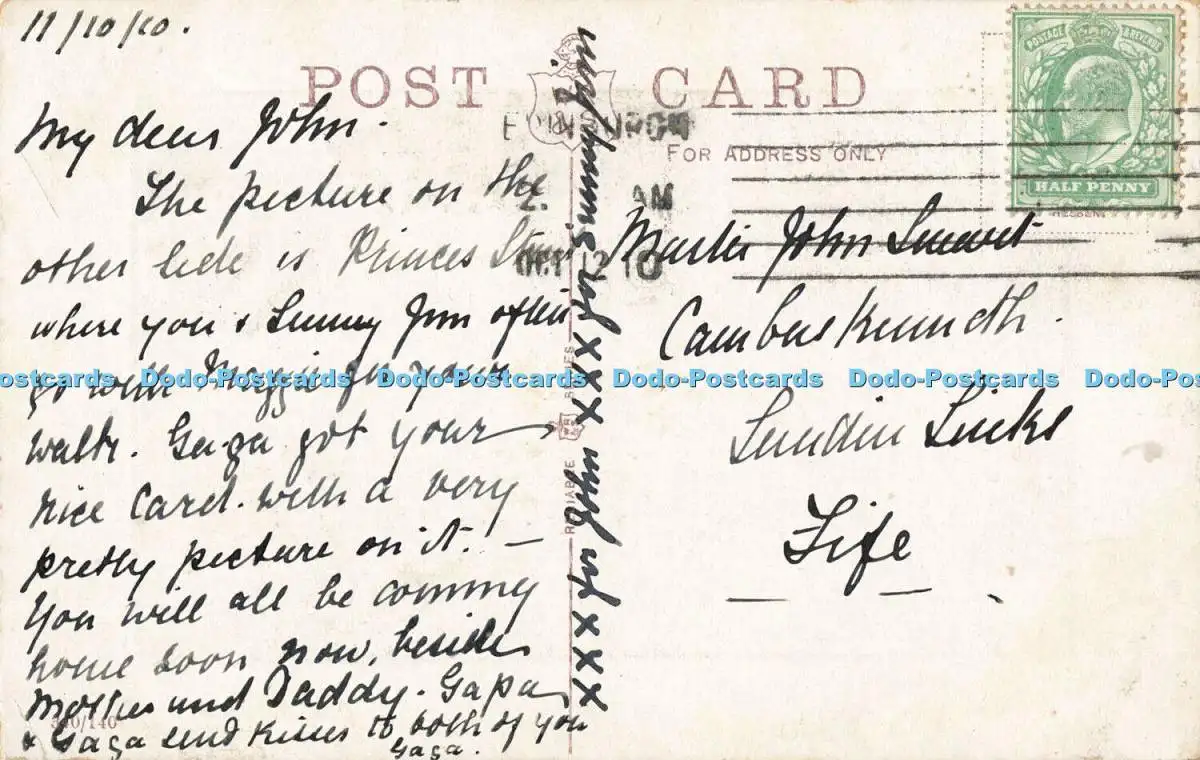 11/10/10.
POST CARD
FOR ADDRESS ONLY
POSTAGE & REVENUE
HALF PENNY
EDINBURGH
AM
OCT 12 10
My dear John.
The picture on the
other side is Princes Street
where you & Sunny Jim often
go with Maggie for your
walk. Ga-ga got your
nice Card. with a very
pretty picture on it. —
You will all be coming
home soon now, beside
Mother and Daddy. Gapa
& Gaga send kisses to both of you
Gaga.
XXX for John XXX for Sunny Jim
Master John
Cambuskenneth.
Lundin Links
Fife
RELIABLE SERIES
340/140
Dodo-Postcards Dodo-Postcards Dodo-Postcards Dodo-Postcards Dodo-Postcards Dodo-Postcards